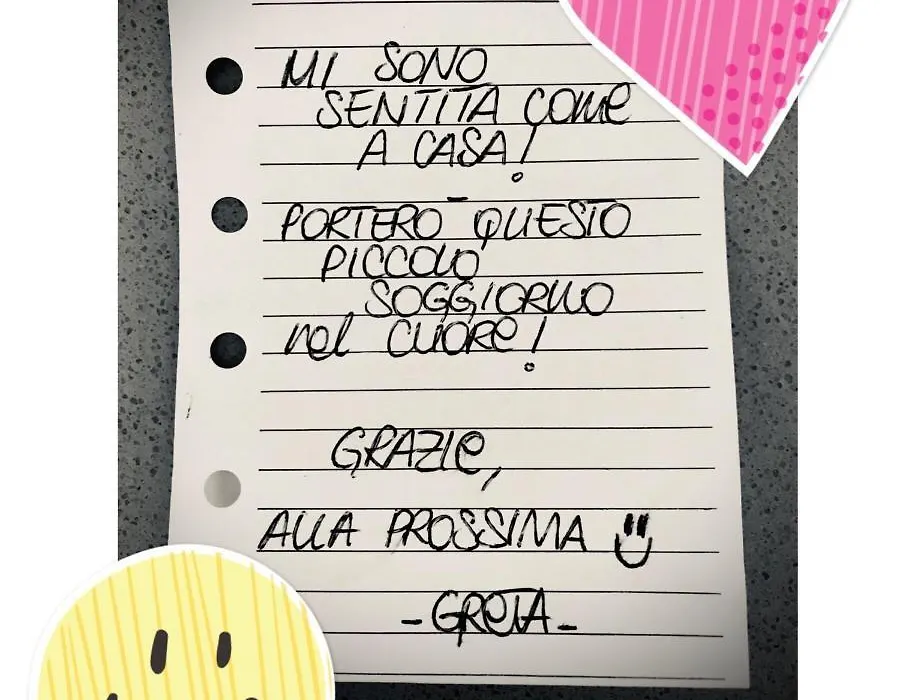 MI SONO
SENTITA COME
A CASA!
PORTERÒ QUESTO
PICCOLO
SOGGIORNO
nel CUORE!
GRAZIE,
ALLA PROSSIMA
-GRETA-